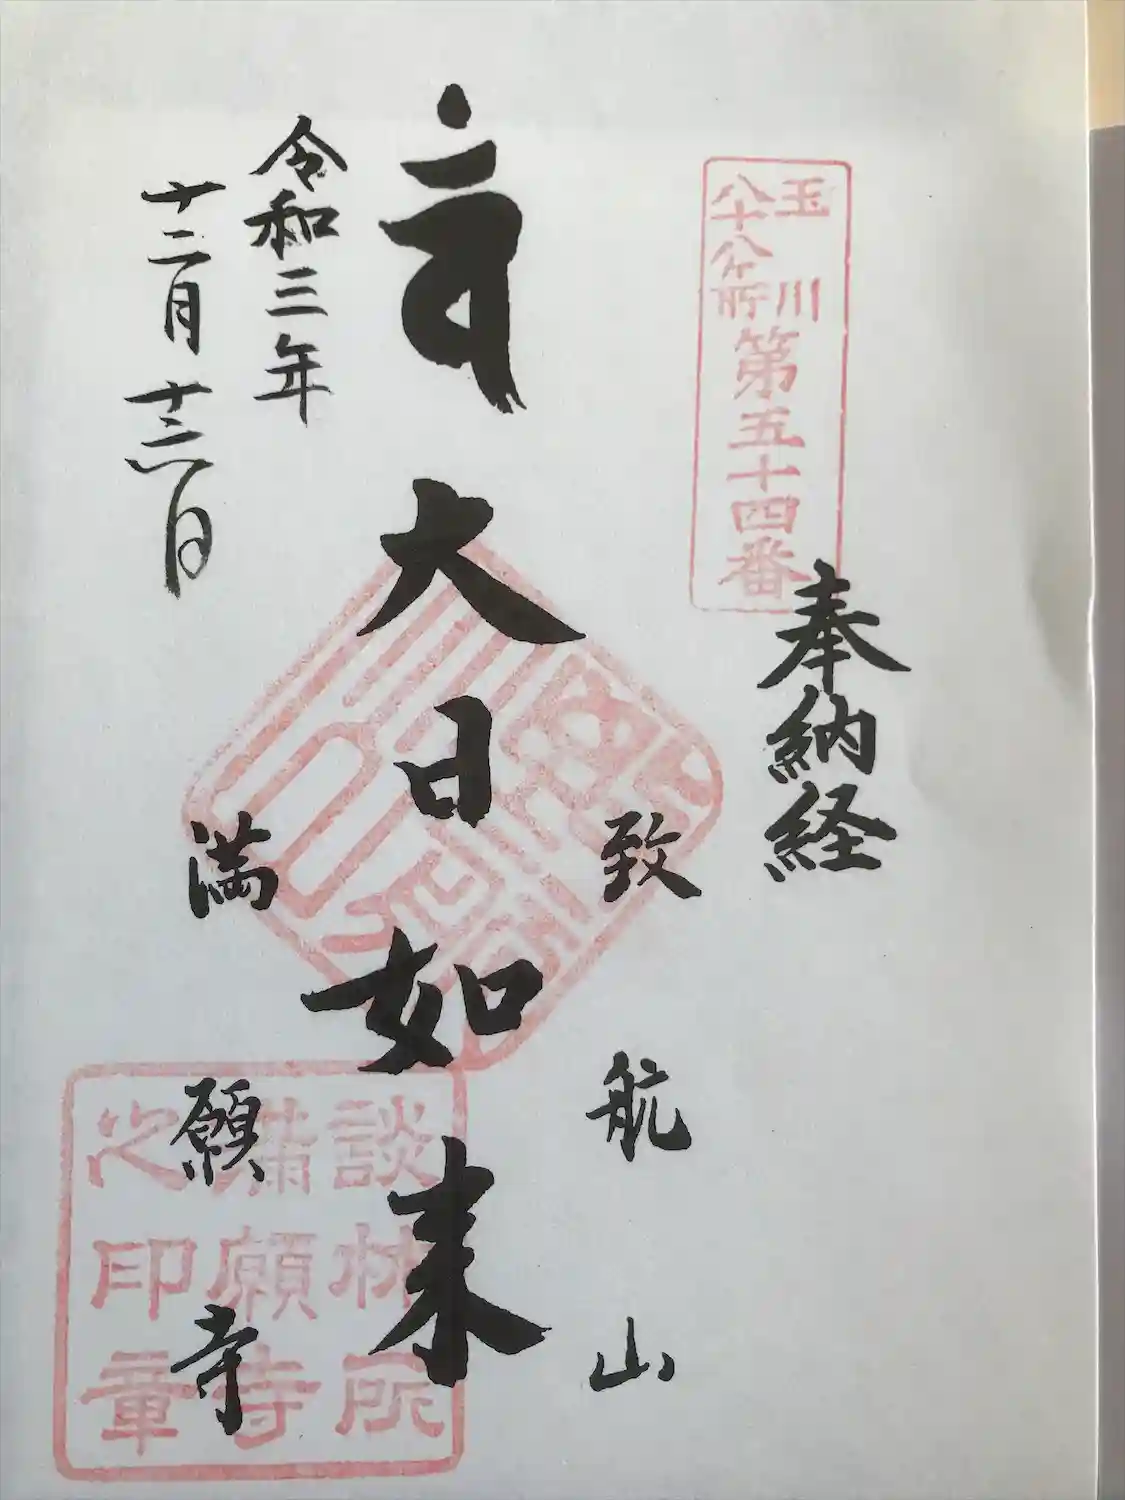 玉川
八十八ヶ所
第五十四番
奉納経
致航山
大日如来
満願寺
令和三年
十二月十三日
談林所
滿願寺
之印章